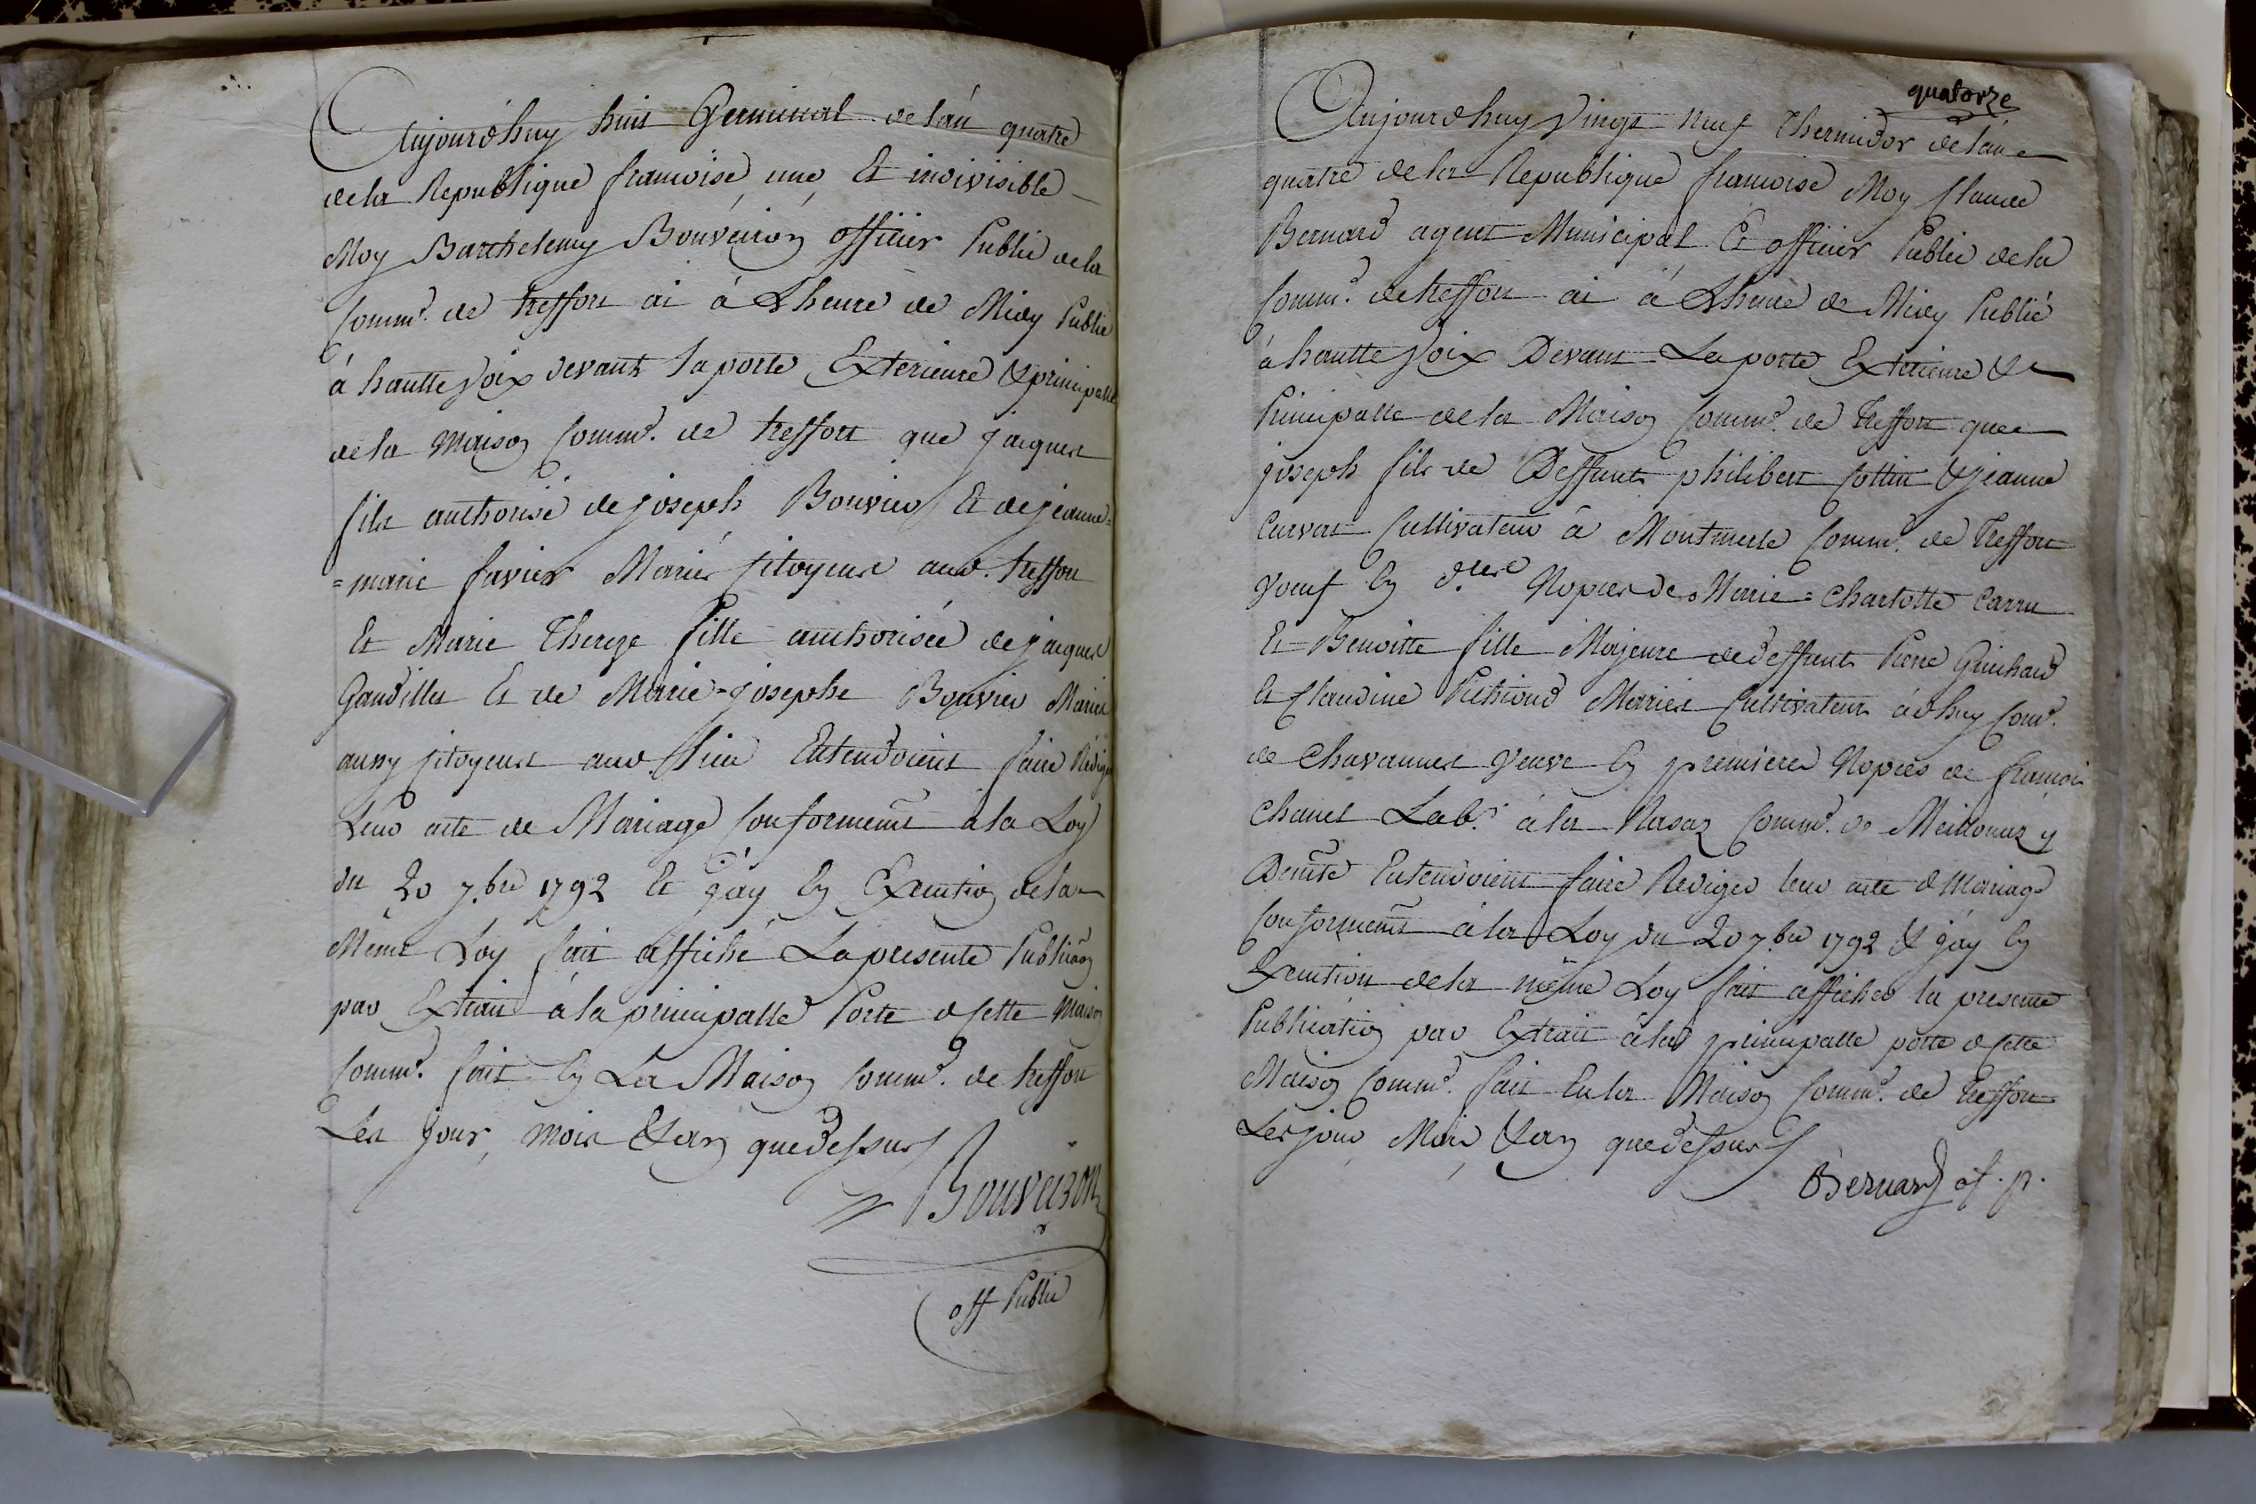 Aujourd'huy huit Germinal de l'an quatre
de la Republique francoise une Et indivisible
Moy Barthelemy Bouveiron officier Public de la
Comm.e de treffort ai à Lheure de Midy Publié
à hautte voix devant la porte Exterieure & principalle
de la Maison Comm.e de treffort que jacques
fils authorisé de joseph Bouvier Et de jeanne=
=marie favier Mariés Citoyens aud. treffort
Et Marie Thereze fille authorisée de jacques
Gaudillet Et de Marie=josephe Bouvier Mariés
aussy Citoyens aud. lieu Entendoient faire Rediger
Leur acte de Mariage Conformement à la Loy
du 20 7.bre 1792 Et j'ay En Execution de la
Même Loy fait affiché La presente Publica͠on
par Extrait à la principalle Porte de Cette Maison
Comm.e fait En La Maison Comm.e de treffort
Les jour, mois & an que dessus
Bouveiron
off Public
quatorze
Aujourdhuy vingt neuf Thermidor de l'an
quatre de la Republique francoise Moy Claude
Bernard agent Municipal Et officier Public de la
Comm.e de treffort ai à Lheure de Midy Publié
à hautte voix Devant La porte Exterieure &
Principalle de la Maison Comm.e de Treffort que
joseph fils de Deffunts philibert Cottin & jeanne
Curvat Cultivateur à Montmerle Comm.e de Treffort
veuf En d.res Nopces de Marie=Charlotte Carru
Et Benoitte fille Majeure de deffunts Piere Guichard
Et Claudine Pithioud Mariés Cultivateurs à dhuy Com.e
de Chavannes veuve En premieres Nopces de francois
Chanel Lab.r à la Rasaz Comm.e de Meillonaz y
Demte Entendoient faire Rediger leur acte de Mariage
Conformement à la Loy du 20 7.bre 1792 & j'ay En
Execution de la même Loy fait afficher la presente
Publication par Extrait à la principalle porte de Cette
Maison Comm.e fait En la Maison Comm.e de Treffort
Les jour, Mois, & an que dessus
Bernard of. p.